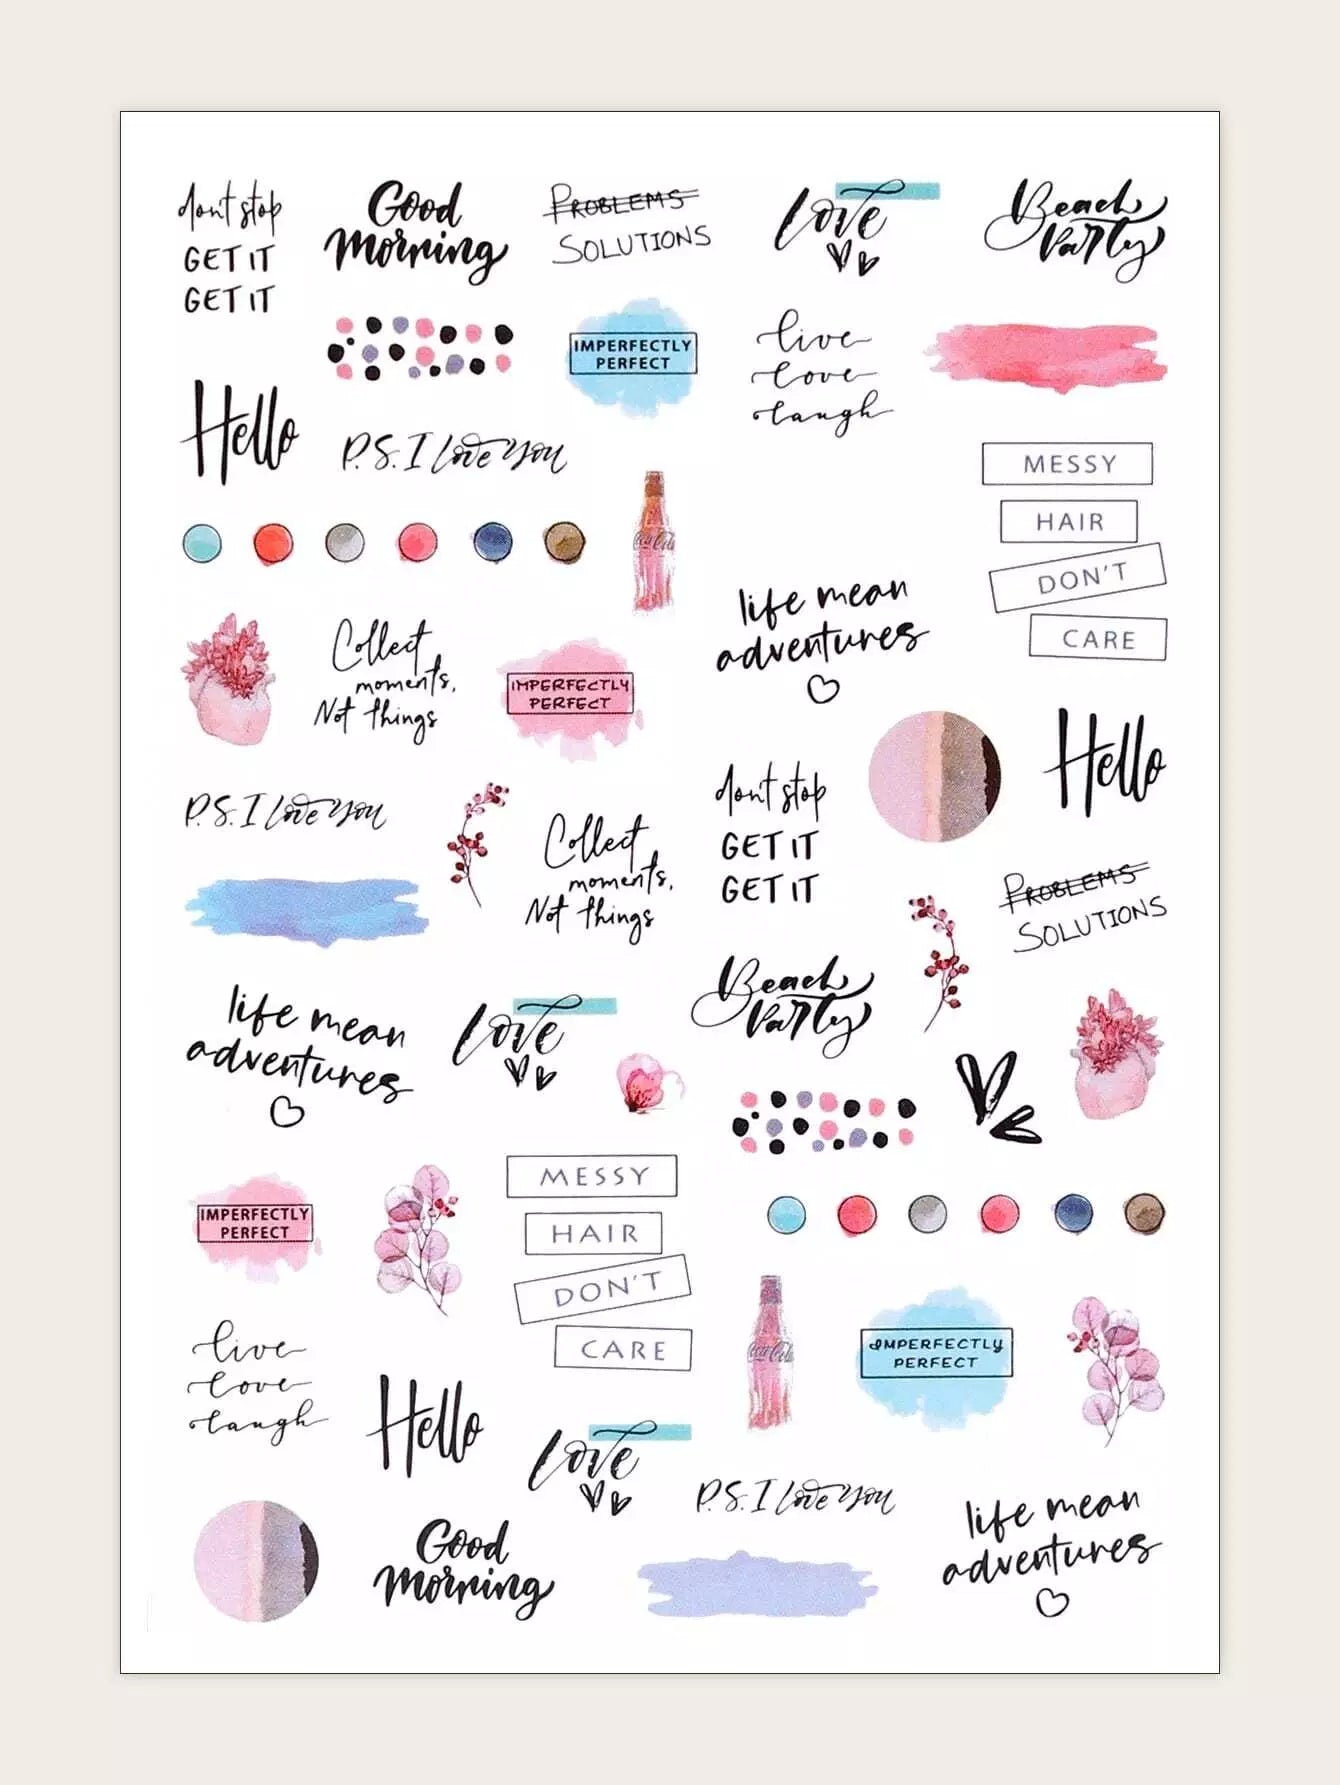 dont stop
GET IT
GET IT
Good
Morning
PROBLEMS
SOLUTIONS
Love
Beach
Party
IMPERFECTLY
PERFECT
live
love
laugh
Hello
P.S. I Love You
MESSY
HAIR
DON'T
CARE
Coca-Cola
life mean
adventures
Collect
moments,
Not things
IMPERFECTLY
PERFECT
Hello
dont stop
GET IT
GET IT
P.S. I Love You
Collect
moments,
Not things
PROBLEMS
SOLUTIONS
Beach
Party
life mean
adventures
Love
MESSY
HAIR
DON'T
CARE
IMPERFECTLY
PERFECT
Coca-Cola
IMPERFECTLY
PERFECT
live
love
laugh
Hello
Love
P.S. I Love You
life mean
adventures
Good
Morning